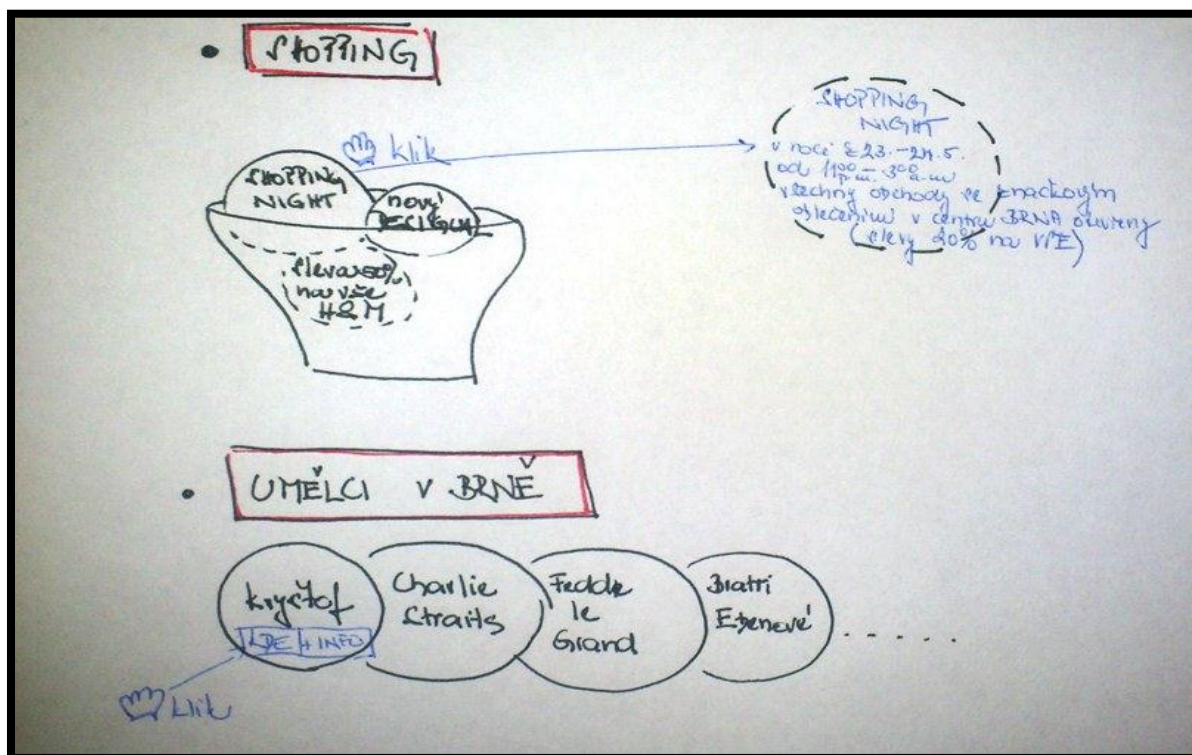 • SHOPPING
klik
SHOPPING
NIGHT
nový
DESIGUAL
sleva 50%
na vše
H&M
SHOPPING
NIGHT
v noci z 23.-24.5.
od 11⁰⁰ p.m. - 3⁰⁰ a.m
všechny obchody se značkovým
oblečením v centru BRNA otevřeny
(slevy 20% na VŠE)
• UMĚLCI V BRNĚ
Kryštof
KDE + INFO
klik
Charlie
Straits
Fedde
le
Grand
Bratři
Ebenové
. . . . . .